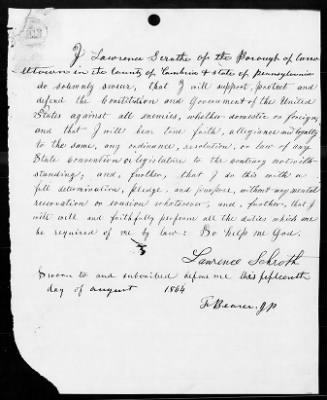 I Lawrence Scrothe of the Borough of
town in the County of Cambria & state of Pennsylvania
do solemnly swear, that I will support, protect and
defend the Constitution and Government of the United
States against all enemies, whether domestic or foreign,
and that I will bear true faith, allegiance and loyalty
to the same, any ordinance, resolution, or law of any
State Convention or legislature to the contrary notwith-
standing; and, further, that I do this with a
full determination, pledge, and purpose, without any mental
reservation or evasion whatsoever, and, further, that I
will well and faithfully perform all the duties which may
be required of me by law: So help me God.
Lawrence Schroth
Sworn to and subscribed before me this fifteenth
day of august 1864
Bearer, J.P.